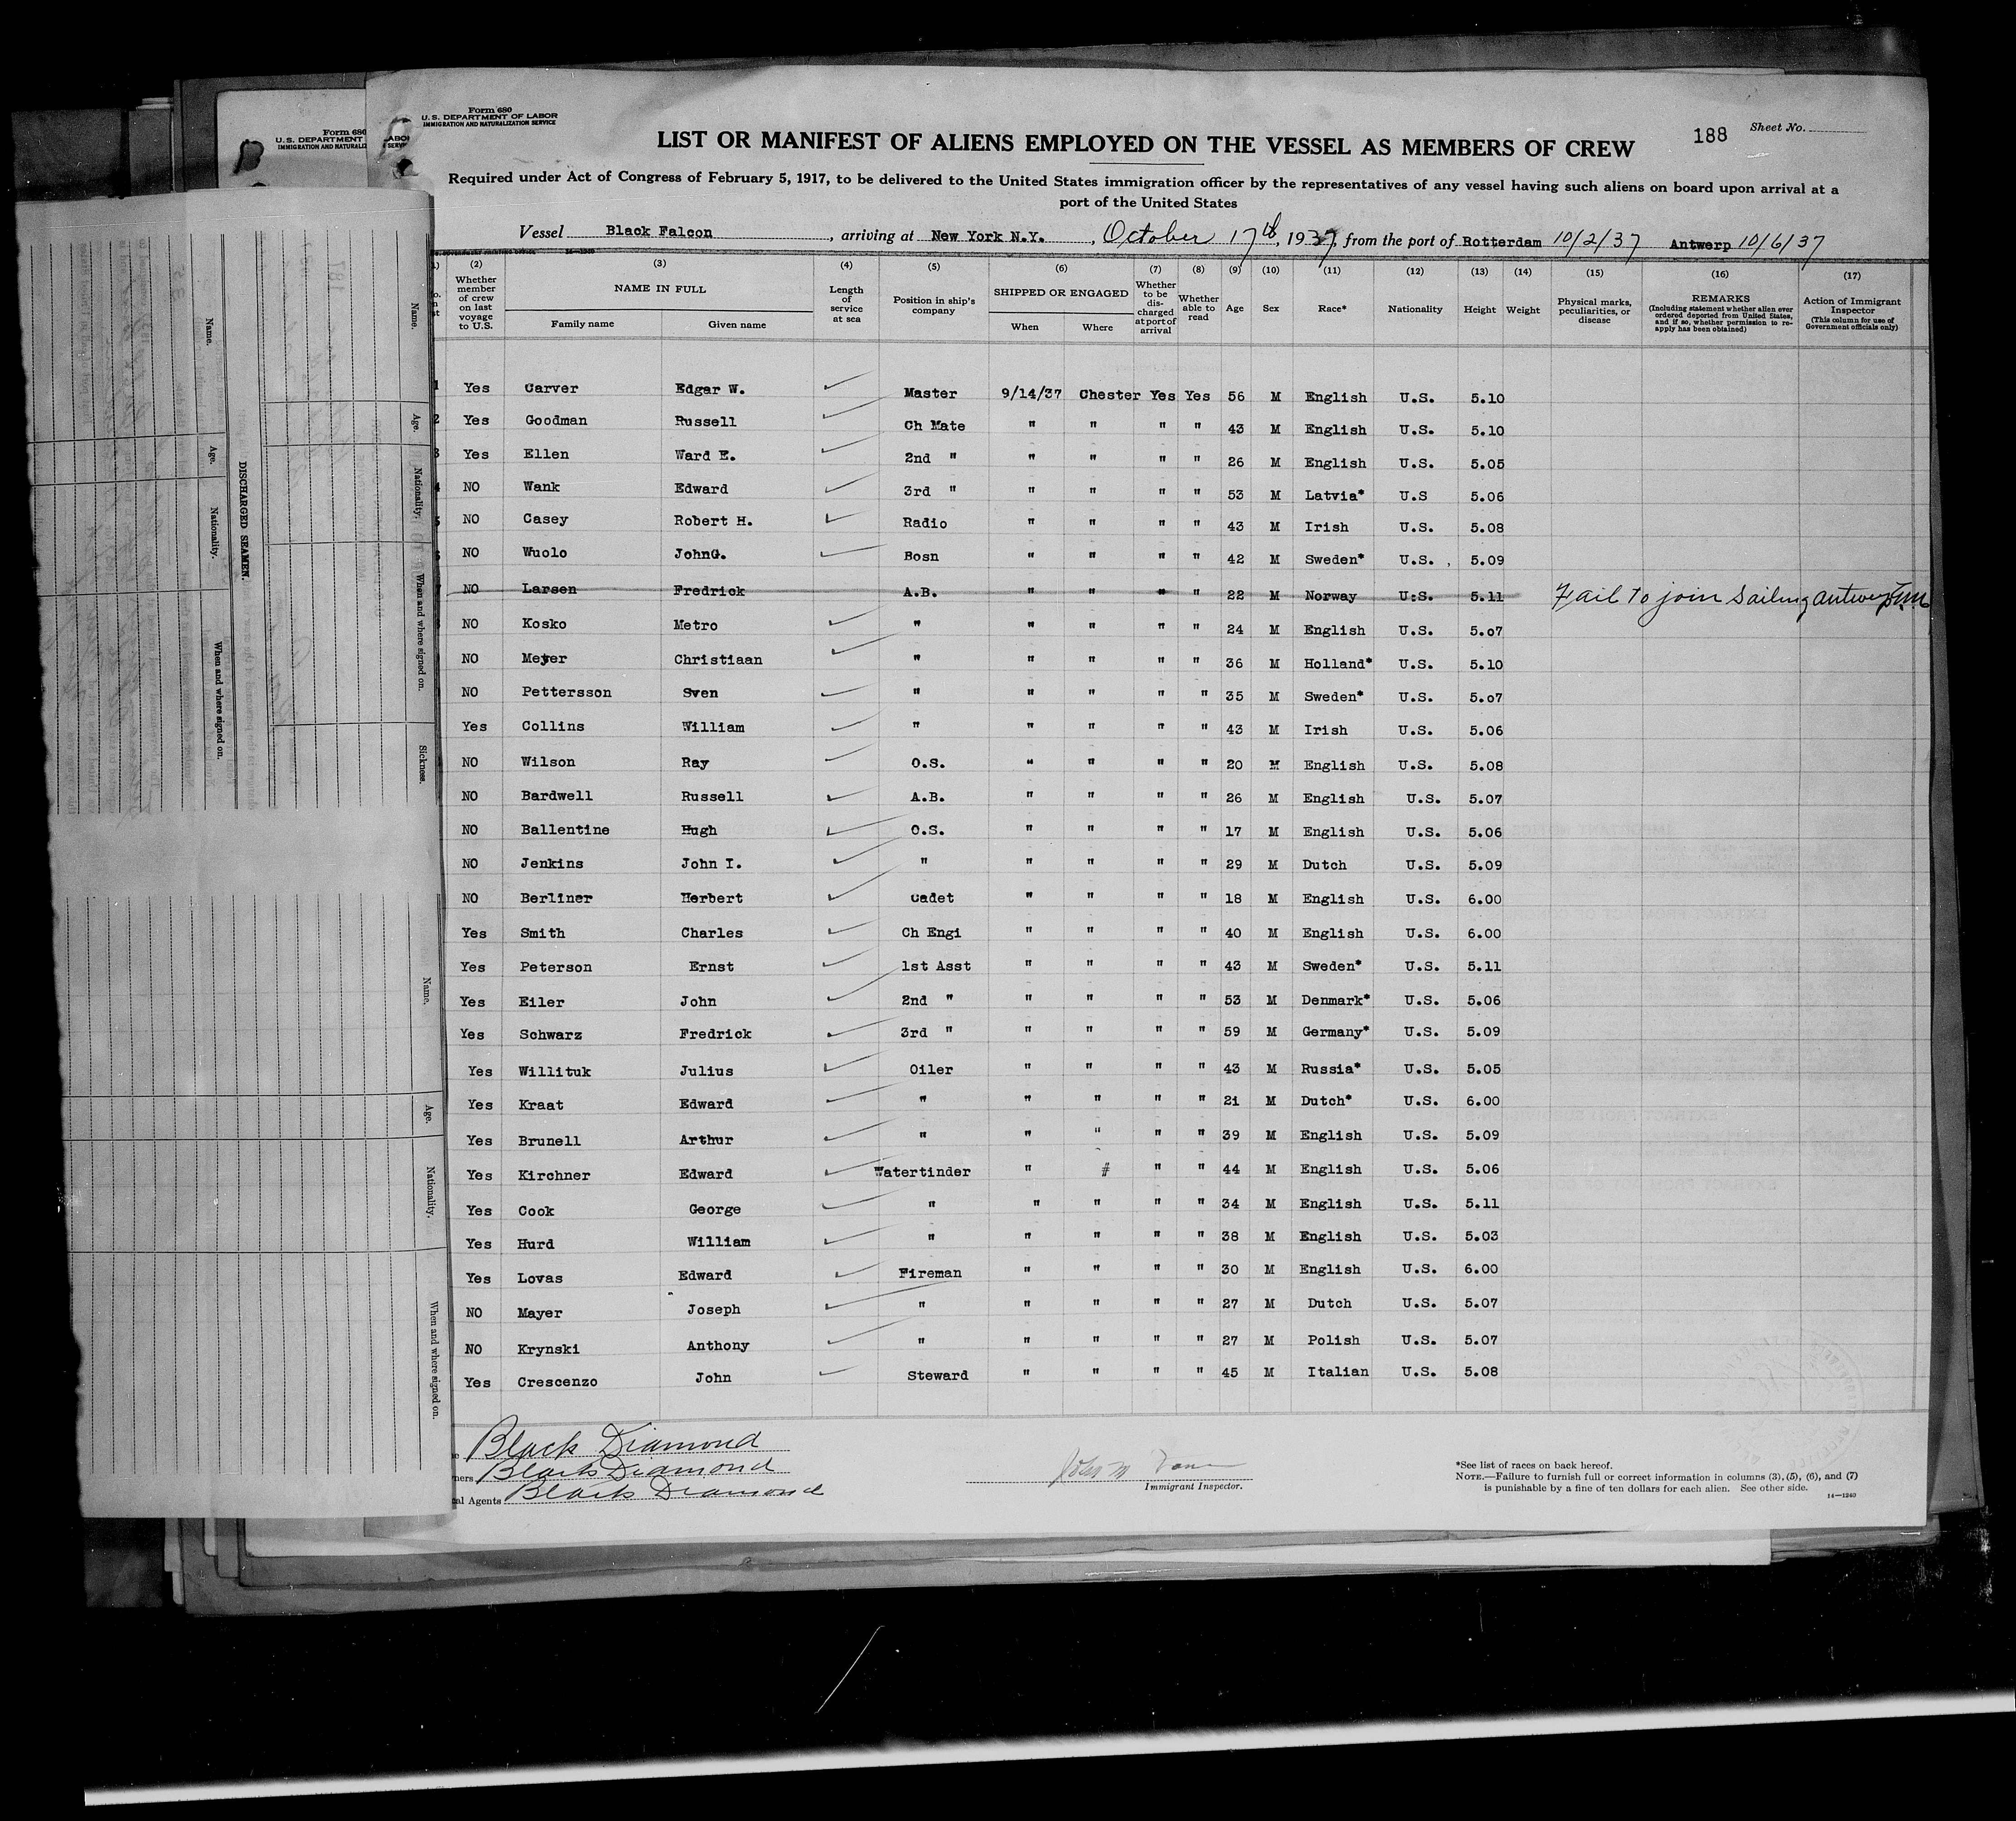 Form 680
U. S. DEPARTMENT OF LABOR
IMMIGRATION AND NATURALIZATION SERVICE
188 Sheet No.
LIST OR MANIFEST OF ALIENS EMPLOYED ON THE VESSEL AS MEMBERS OF CREW
Required under Act of Congress of February 5, 1917, to be delivered to the United States immigration officer by the representatives of any vessel having such aliens on board upon arrival at a
port of the United States
Vessel Black Falcon, arriving at New York N.Y., October 17th, 1937, from the port of Rotterdam 10/2/37 Antwerp 10/6/37
(2) (3) (4) (5) (6) (7) (8) (9) (10) (11) (12) (13) (14) (15) (16) (17)
Whether member of crew on last voyage to U.S. NAME IN FULL Family name Given name Length of service at sea Position in ship's company SHIPPED OR ENGAGED When Where Whether to be discharged at port of arrival Whether able to read Age Sex Race* Nationality Height Weight Physical marks, peculiarities, or disease REMARKS (Including statement whether alien ever ordered deported from United States, and if so, whether permission to reapply has been obtained) Action of Immigrant Inspector (This column for use of Government officials only)
1 Yes Carver Edgar W. Master 9/14/37 Chester Yes Yes 56 M English U.S. 5.10
2 Yes Goodman Russell Ch Mate " " " " 43 M English U.S. 5.10
3 Yes Ellen Ward E. 2nd " " " " " 26 M English U.S. 5.05
4 NO Wank Edward 3rd " " " " " 53 M Latvia* U.S 5.06
5 NO Casey Robert H. Radio " " " " 43 M Irish U.S. 5.08
6 NO Wuolo JohnG. Bosn " " " " 42 M Sweden* U.S. 5.09
7 NO Larsen Fredrick A.B. " " " " 22 M Norway U.S. 5.11 Fail to join sailing antwerp
NO Kosko Metro " " " " " 24 M English U.S. 5.07
NO Meyer Christiaan " " " " " 36 M Holland* U.S. 5.10
NO Pettersson Sven " " " " " 35 M Sweden* U.S. 5.07
Yes Collins William " " " " " 43 M Irish U.S. 5.06
NO Wilson Ray O.S. " " " " 20 M English U.S. 5.08
NO Bardwell Russell A.B. " " " " 26 M English U.S. 5.07
NO Ballentine Hugh O.S. " " " " 17 M English U.S. 5.06
NO Jenkins John I. " " " " " 29 M Dutch U.S. 5.09
NO Berliner Herbert cadet " " " " 18 M English U.S. 6.00
Yes Smith Charles Ch Engi " " " " 40 M English U.S. 6.00
Yes Peterson Ernst 1st Asst " " " " 43 M Sweden* U.S. 5.11
Yes Eiler John 2nd " " " " " 53 M Denmark* U.S. 5.06
Yes Schwarz Fredrick 3rd " " " " " 59 M Germany* U.S. 5.09
Yes Willituk Julius Oiler " " " " 43 M Russia* U.S. 5.05
Yes Kraat Edward " " " " " 21 M Dutch* U.S. 6.00
Yes Brunell Arthur " " " " " 39 M English U.S. 5.09
Yes Kirchner Edward Watertinder " # " " 44 M English U.S. 5.06
Yes Cook George " " " " " 34 M English U.S. 5.11
Yes Hurd William " " " " " 38 M English U.S. 5.03
Yes Lovas Edward Fireman " " " " 30 M English U.S. 6.00
NO Mayer Joseph " " " " " 27 M Dutch U.S. 5.07
NO Krynski Anthony " " " " " 27 M Polish U.S. 5.07
Yes Crescenzo John Steward " " " " 45 M Italian U.S. 5.08
Black Diamond
Black Diamond
Agents Black Diamond
Immigrant Inspector.
*See list of races on back hereof.
NOTE.—Failure to furnish full or correct information in columns (3), (5), (6), and (7)
is punishable by a fine of ten dollars for each alien. See other side.
14—1240
Form 680
U. S. DEPARTMENT
IMMIGRATION AND NATURALIZ
DISCHARGED SEAMEN.
Name.
Age.
Nationality.
When and where signed on.
Name.
Age.
Nationality.
When and where signed on.
Sickness.
Name.
Age.
Nationality.
When and where signed on.